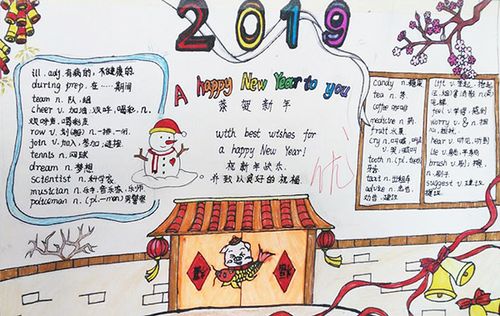 2019
A happy New Year to you
恭贺新年
with best wishes for
a happy New Year!
祝新年快乐.
并致以良好的祝福.
优
ill. adj. 有病的, 不健康的.
during prep. 在……期间
team n. 队, 组
cheer v. 加油, 欢呼, 喝彩. n.
欢呼声, 喝彩声
row v. 划(船) n. 一排, 一行.
join v. 加入, 参加, 连接.
tennis n. 网球
dream n. 梦想
scientist n. 科学家
musician n. 音乐家, 乐师.
policeman n. (pl. -men) 男警察
candy n. 糖果
tea n. 茶
coffee n.
medicine n. 药
fruit 水果
cry n.
tooth n. (pl. teeth)
牙齿
taxi n. 出租车
advice n. 忠告,
劝告, 建议
lift v. 举起,
feel v.
worry v. & n. 担
hear v. 听见, 听到
lie v.
brush v. 刷; 擦.
n. 刷子
suggest v. 建议